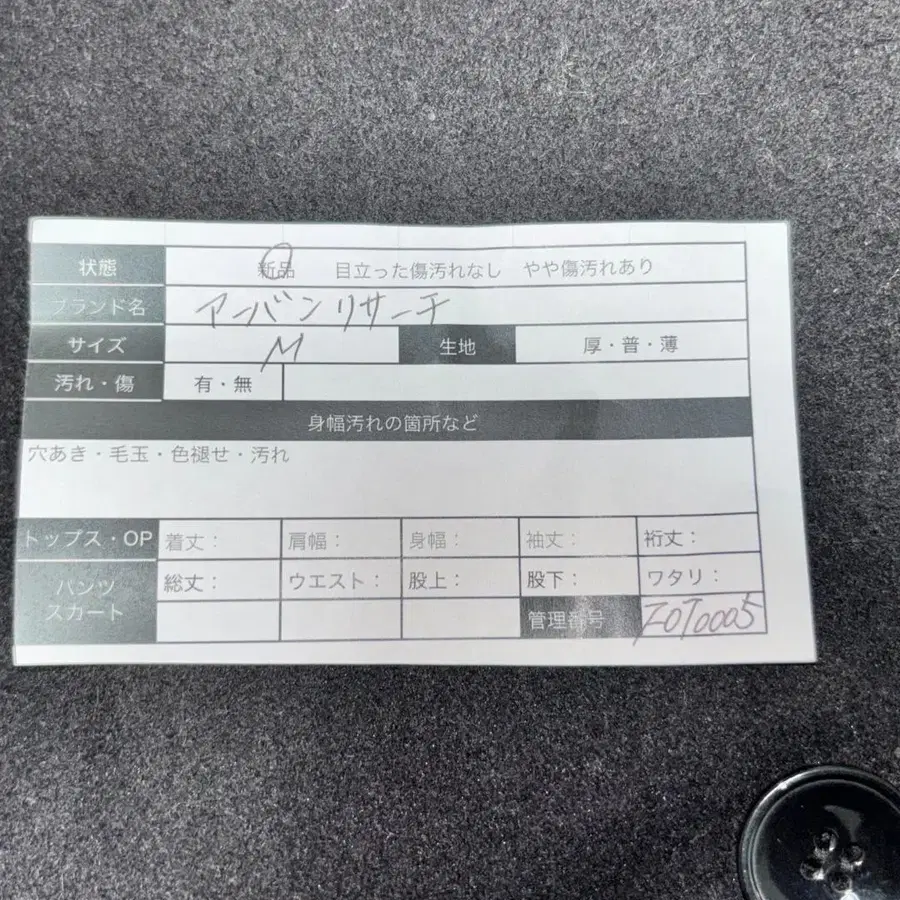 状態 新品 目立った傷汚れなし やや傷汚れあり
ブランド名 アーバンリサーチ
サイズ M 生地 厚・普・薄
汚れ・傷 有・無
身幅汚れの箇所など
穴あき・毛玉・色褪せ・汚れ
トップス・OP 着丈: 肩幅: 身幅: 袖丈: 裄丈:
パンツ スカート 総丈: ウエスト: 股上: 股下: ワタリ:
管理番号